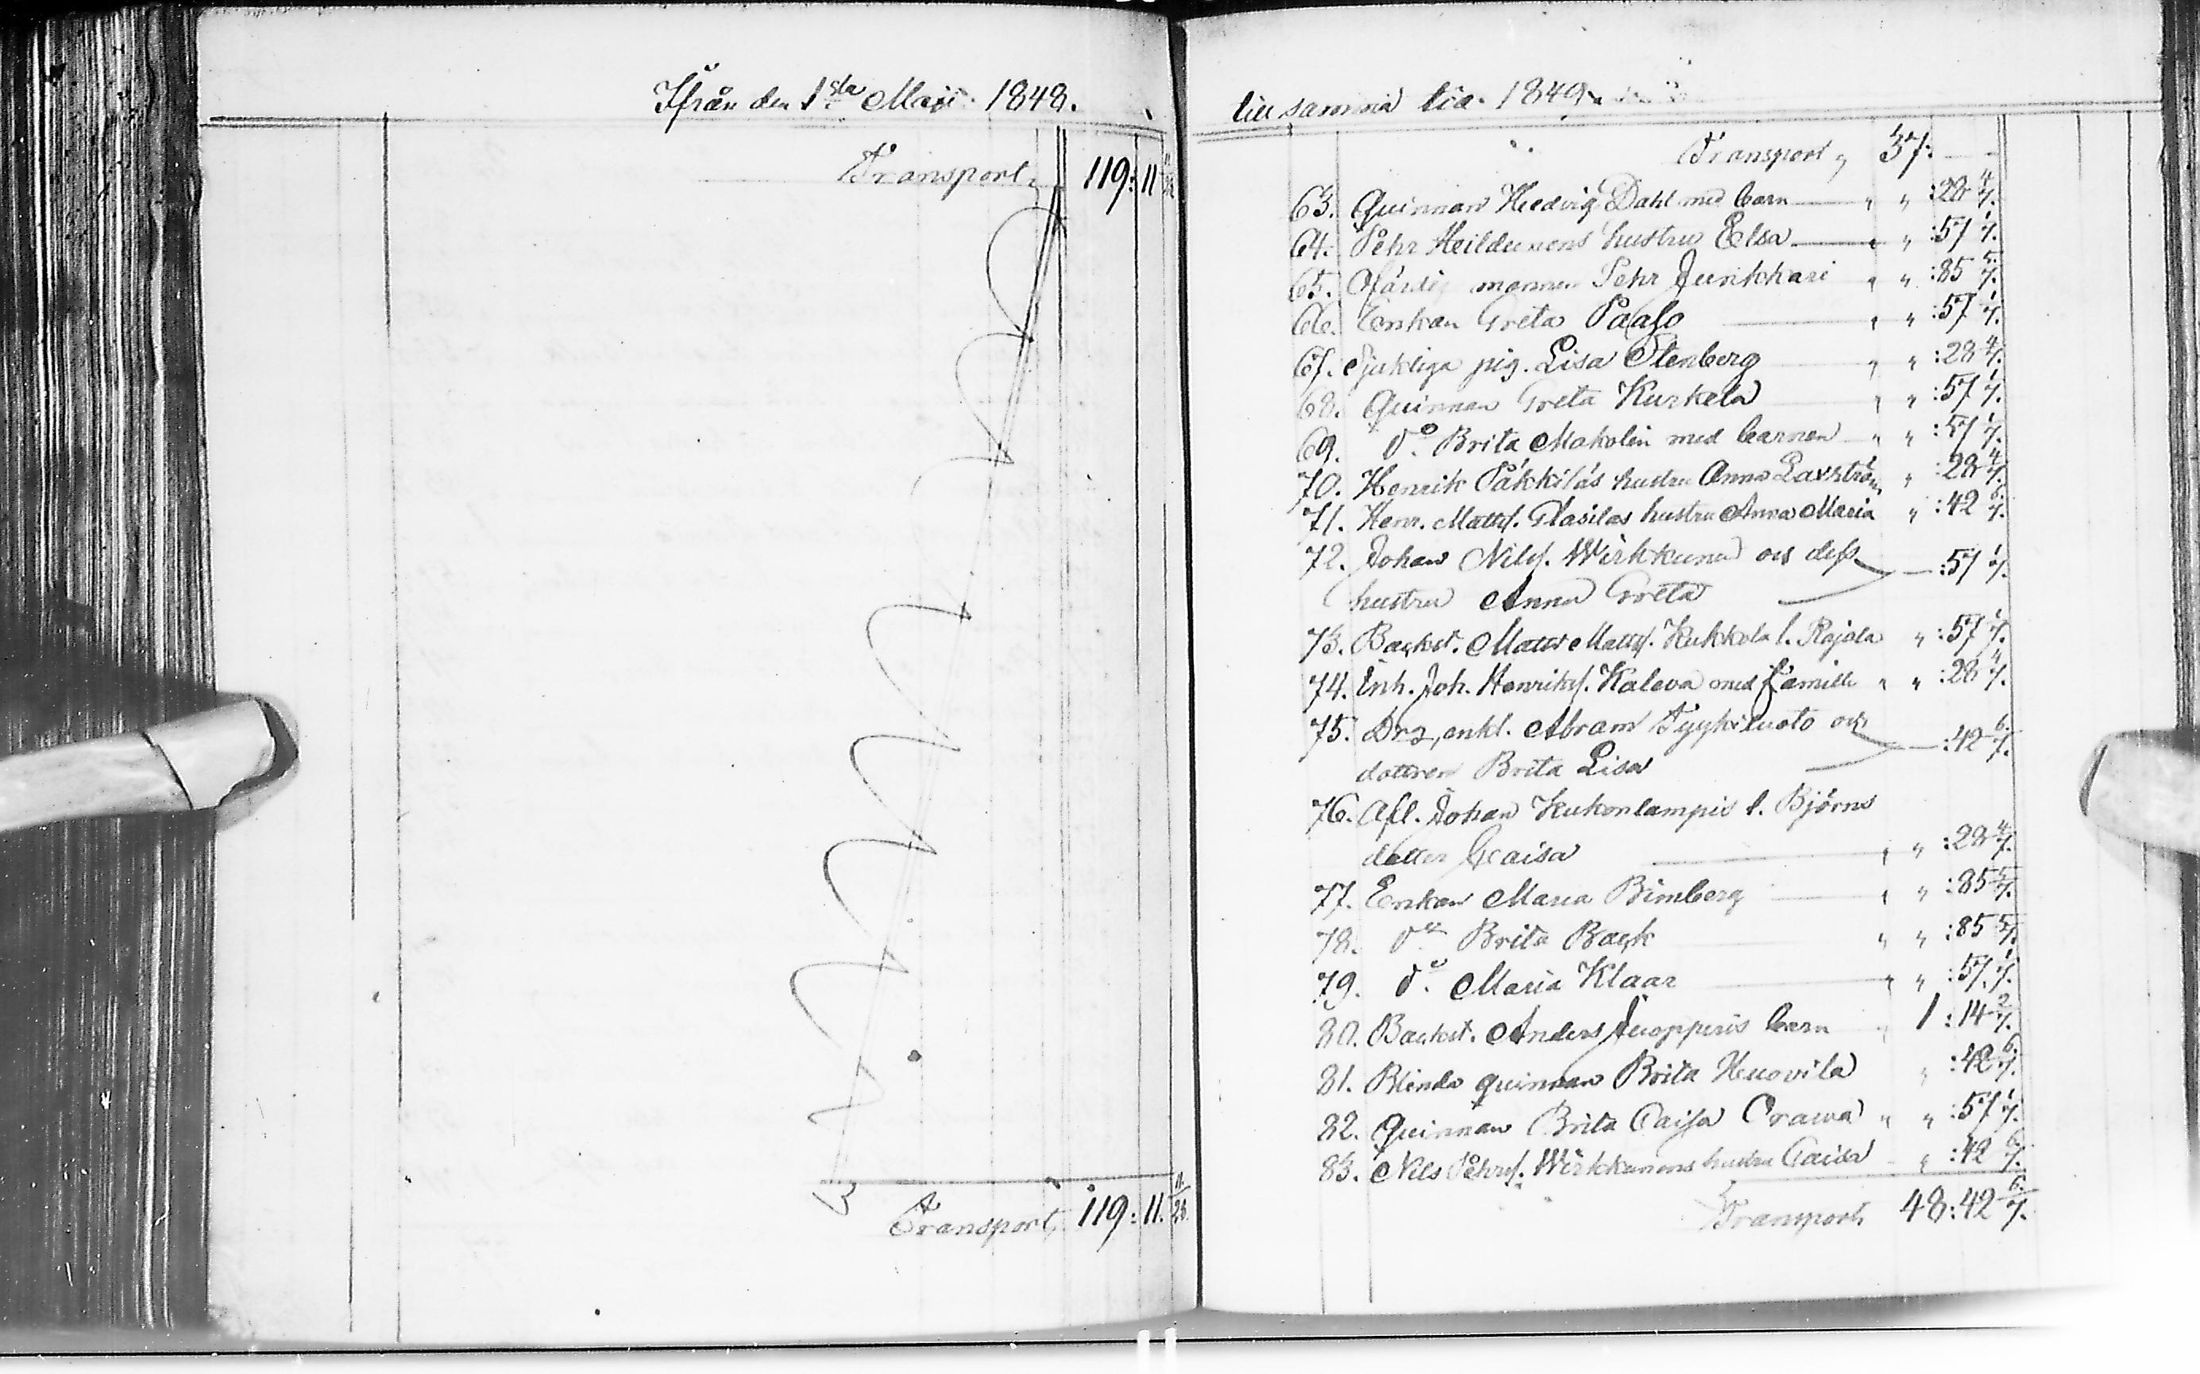 Ifrån den 1sta Maji 1848.
Transport, 119: 11
Transport, 119: 11. 11/28.
till samma tid 1849
Transport, 37: — -
63. Quinnan Hedvig Dahl med barn — " " :28 4/7.
64. Pehr Heildunens hustru Elsa — " " :57 1/7.
65. Ofärdig mannen Pehr Junkkari " " :85 5/7.
66. Enkan Greta Paaso " " :57 1/7.
67. Sjukliga pig. Lisa Stenberg " " :28 4/7.
68. Quinnan Greta Kurkela " " :57 1/7.
69. Do Brita Makolin med barnen " " :57 1/7.
70. Henrik Påkkilás hustru Anna Laxström " :28 4/7.
71. Henr. Matts. Plasilas hustru Anna Maria " :42 6/7.
72. Johan Nils. Wirkkunen och dess
hustru Anna Greta — :57 1/7.
73. Backst. Matts Matts. Kukkola l. Rajala " :57 1/7.
74. Inh. Joh. Henriks. Kaleva med familie " " :28 4/7.
75. Drg, enkl. Abram Tyykiluoto och
dottren Brita Lisa — :42 6/7.
76. Afl. Johan Kukonlampis l. Björns
dotter Caisa " " :28 4/7.
77. Enkan Maria Bimberg " " :85 5/7.
78. Do Brita Back " " :85 5/7.
79. Do Maria Klaar " " :57 1/7.
80. Backst. Anders Juopperis barn " 1 :14 2/7.
81. Blinda quinnan Brita Heuovila " :42 6/7.
82. Quinnan Brita Caisa Orawa " " :57 1/7.
83. Nils Pehrs. Wirkkunens hustru Caisa " :42 6/7.
Transport, 48:42 6/7.